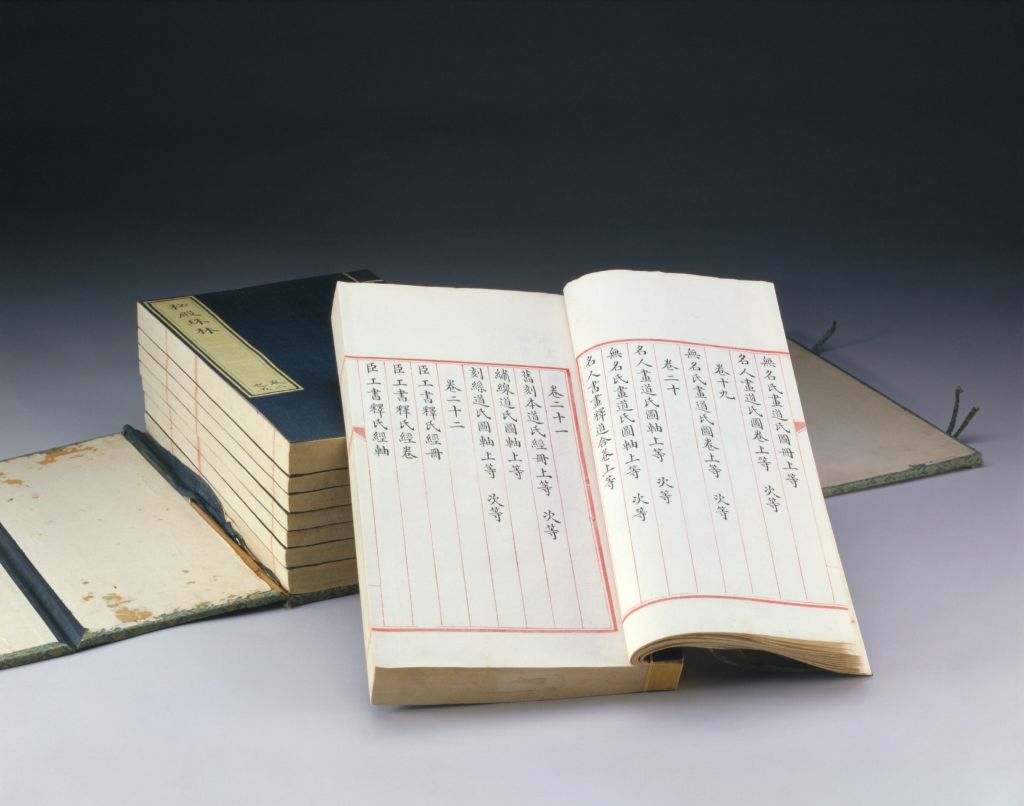 秘殿珠林
無名氏畫道氏圖冊上等
名人畫道氏圖卷上等 次等
卷十九
無名氏畫道氏圖卷上等 次等
卷二十
名人畫道氏圖軸上等 次等
無名氏畫道氏圖軸上等 次等
名人書畫釋道合卷上等
卷二十一
舊刻本道氏經冊上等 次等
繡線道氏圖軸上等
刻絲道氏圖軸上等 次等
卷二十二
臣工書釋氏經冊
臣工書釋氏經卷
臣工書釋氏經軸